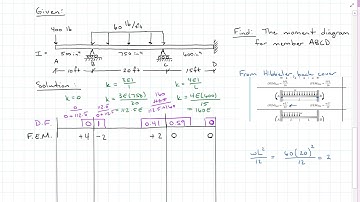 Given:
400 lb
60 lb/ft
I =
500in⁴
750in⁴
600in⁴
A
B
C
D
10ft
20ft
15ft
Find: The moment diagram
for member ABCD
From Hibbeler, back cover
Solution:
k = 0
k = 3EI/L
k = 3E(750)/20
= 112.5E
k = 4EI/L
k = 4E(600)/15
= 160E
D.F.
0
1
0.41
0.59
0
F.E.M.
+4
-2
+2
0
0
wL²/12 = 60(20)²/12 = 2